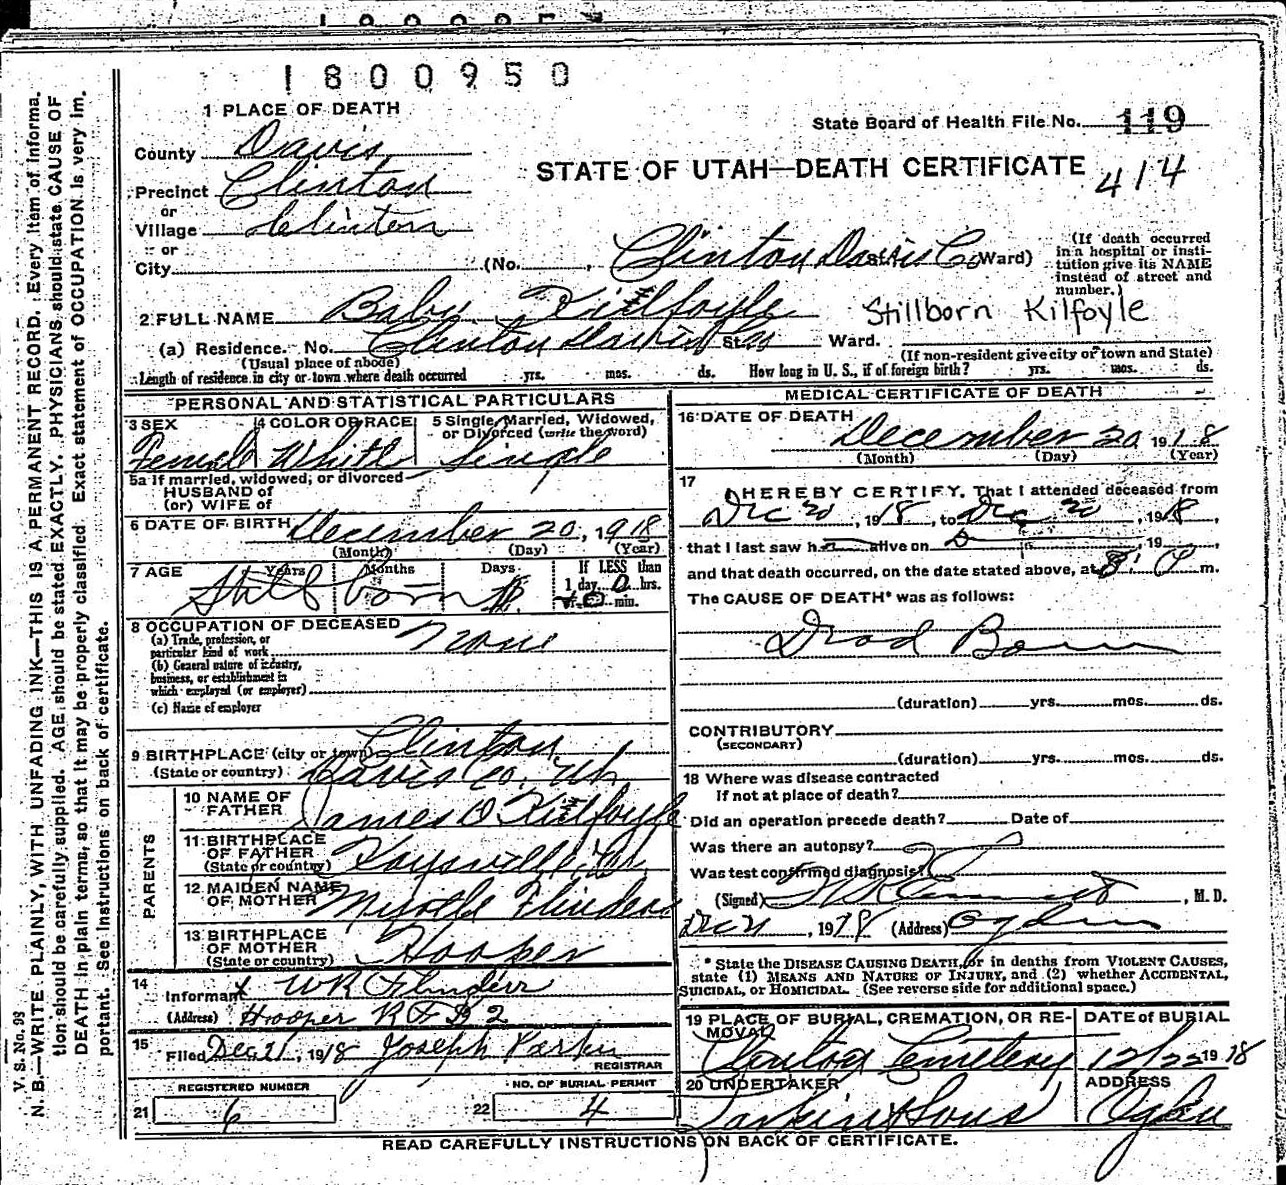 1800950
1 PLACE OF DEATH
State Board of Health File No. 119
STATE OF UTAH—DEATH CERTIFICATE 414
County Davis
Precinct Clinton
or
Village Clinton
or
City (No. , Clinton Davis Co St. Ward)
(If death occurred in a hospital or institution give its NAME instead of street and number.)
2 FULL NAME Baby Kilfoyle Stillborn Kilfoyle
(a) Residence. No. Clinton St. Ward.
(Usual place of abode) (If non-resident give city or town and State)
Length of residence in city or town where death occurred yrs. mos. ds. How long in U. S., if of foreign birth? yrs. mos. ds.
PERSONAL AND STATISTICAL PARTICULARS
3 SEX 4 COLOR OR RACE 5 Single, Married, Widowed, or Divorced (write the word)
Female White Single
5a If married, widowed, or divorced
HUSBAND of
(or) WIFE of
6 DATE OF BIRTH December 20, 1918
(Month) (Day) (Year)
7 AGE Years Months Days If LESS than
1 day, 0 hrs.
or 0 min.
Stillborn
8 OCCUPATION OF DECEASED
(a) Trade, profession, or
particular kind of work None
(b) General nature of industry,
business, or establishment in
which employed (or employer)
(c) Name of employer
9 BIRTHPLACE (city or town) Clinton
(State or country) Davis Co. Ut.
PARENTS
10 NAME OF
FATHER James O Kilfoyle
11 BIRTHPLACE
OF FATHER
(State or country) Kaysville
12 MAIDEN NAME
OF MOTHER Myrtle Flinders
13 BIRTHPLACE
OF MOTHER
(State or country) Hooper
14
Informant W R Flinders
(Address) Hooper R F D 2
15
Filed Dec 21, 1918 Joseph Parker
REGISTRAR
REGISTERED NUMBER NO. OF BURIAL PERMIT
21 6 22 4
MEDICAL CERTIFICATE OF DEATH
16 DATE OF DEATH
December 20 1918
(Month) (Day) (Year)
17
I HEREBY CERTIFY, That I attended deceased from
Dec 20, 1918, to Dec 20, 1918,
that I last saw h alive on , 19 ,
and that death occurred, on the date stated above, at 8 P m.
The CAUSE OF DEATH* was as follows:
Dead Born
(duration) yrs. mos. ds.
CONTRIBUTORY
(SECONDARY)
(duration) yrs. mos. ds.
18 Where was disease contracted
If not at place of death?
Did an operation precede death? Date of
Was there an autopsy?
Was test confirmed diagnosis?
(Signed) , M. D.
Dec 21, 1918 (Address) Ogden
* State the DISEASE CAUSING DEATH, or in deaths from VIOLENT CAUSES,
state (1) MEANS AND NATURE OF INJURY, and (2) whether ACCIDENTAL,
SUICIDAL, or HOMICIDAL. (See reverse side for additional space.)
19 PLACE OF BURIAL, CREMATION, OR RE-
MOVAL DATE of BURIAL
Clinton Cemetery 12/22 1918
20 UNDERTAKER ADDRESS
Larkin & Sons Ogden
READ CAREFULLY INSTRUCTIONS ON BACK OF CERTIFICATE.
V. S. No. 98
N. B.—WRITE PLAINLY, WITH UNFADING INK—THIS IS A PERMANENT RECORD. Every item of informa-
tion should be carefully supplied. AGE should be stated EXACTLY. PHYSICIANS should state CAUSE OF
DEATH in plain terms, so that it may be properly classified. Exact statement of OCCUPATION is very im-
portant. See instructions on back of certificate.